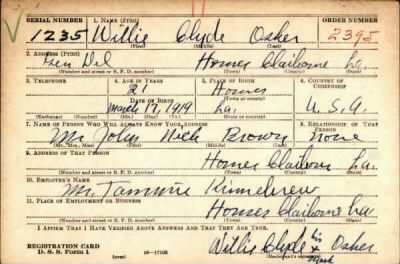 SERIAL NUMBER 1. NAME (Print) ORDER NUMBER
1235 Willie Clyde Osker 2395
(First) (Middle) (Last)
2. ADDRESS (Print)
Gen Del Homer Claiborne La.
(Number and street or R. F. D. number) (Town) (County) (State)
3. TELEPHONE 4. AGE IN YEARS 5. PLACE OF BIRTH 6. COUNTRY OF CITIZENSHIP
21 Homer
DATE OF BIRTH (Town or county)
March 17, 1919 La. U.S.A.
(Exchange) (Number) (Mo.) (Day) (Yr.) (State or country)
7. NAME OF PERSON WHO WILL ALWAYS KNOW YOUR ADDRESS 8. RELATIONSHIP OF THAT PERSON
Mr. John Nick Brown none
(Mr., Mrs., Miss) (First) (Middle) (Last)
9. ADDRESS OF THAT PERSON
Homer Claiborne La.
(Number and street or R. F. D. number) (Town) (County) (State)
10. EMPLOYER'S NAME
Mr. Tammie Kimebrew
11. PLACE OF EMPLOYMENT OR BUSINESS
Homer Claiborne La
(Number and street or R. F. D. number) (Town) (County) (State)
I AFFIRM THAT I HAVE VERIFIED ABOVE ANSWERS AND THAT THEY ARE TRUE.
REGISTRATION CARD
D. S. S. Form 1 (over) Willie Clyde his x mark Osker
(Registrant's signature)